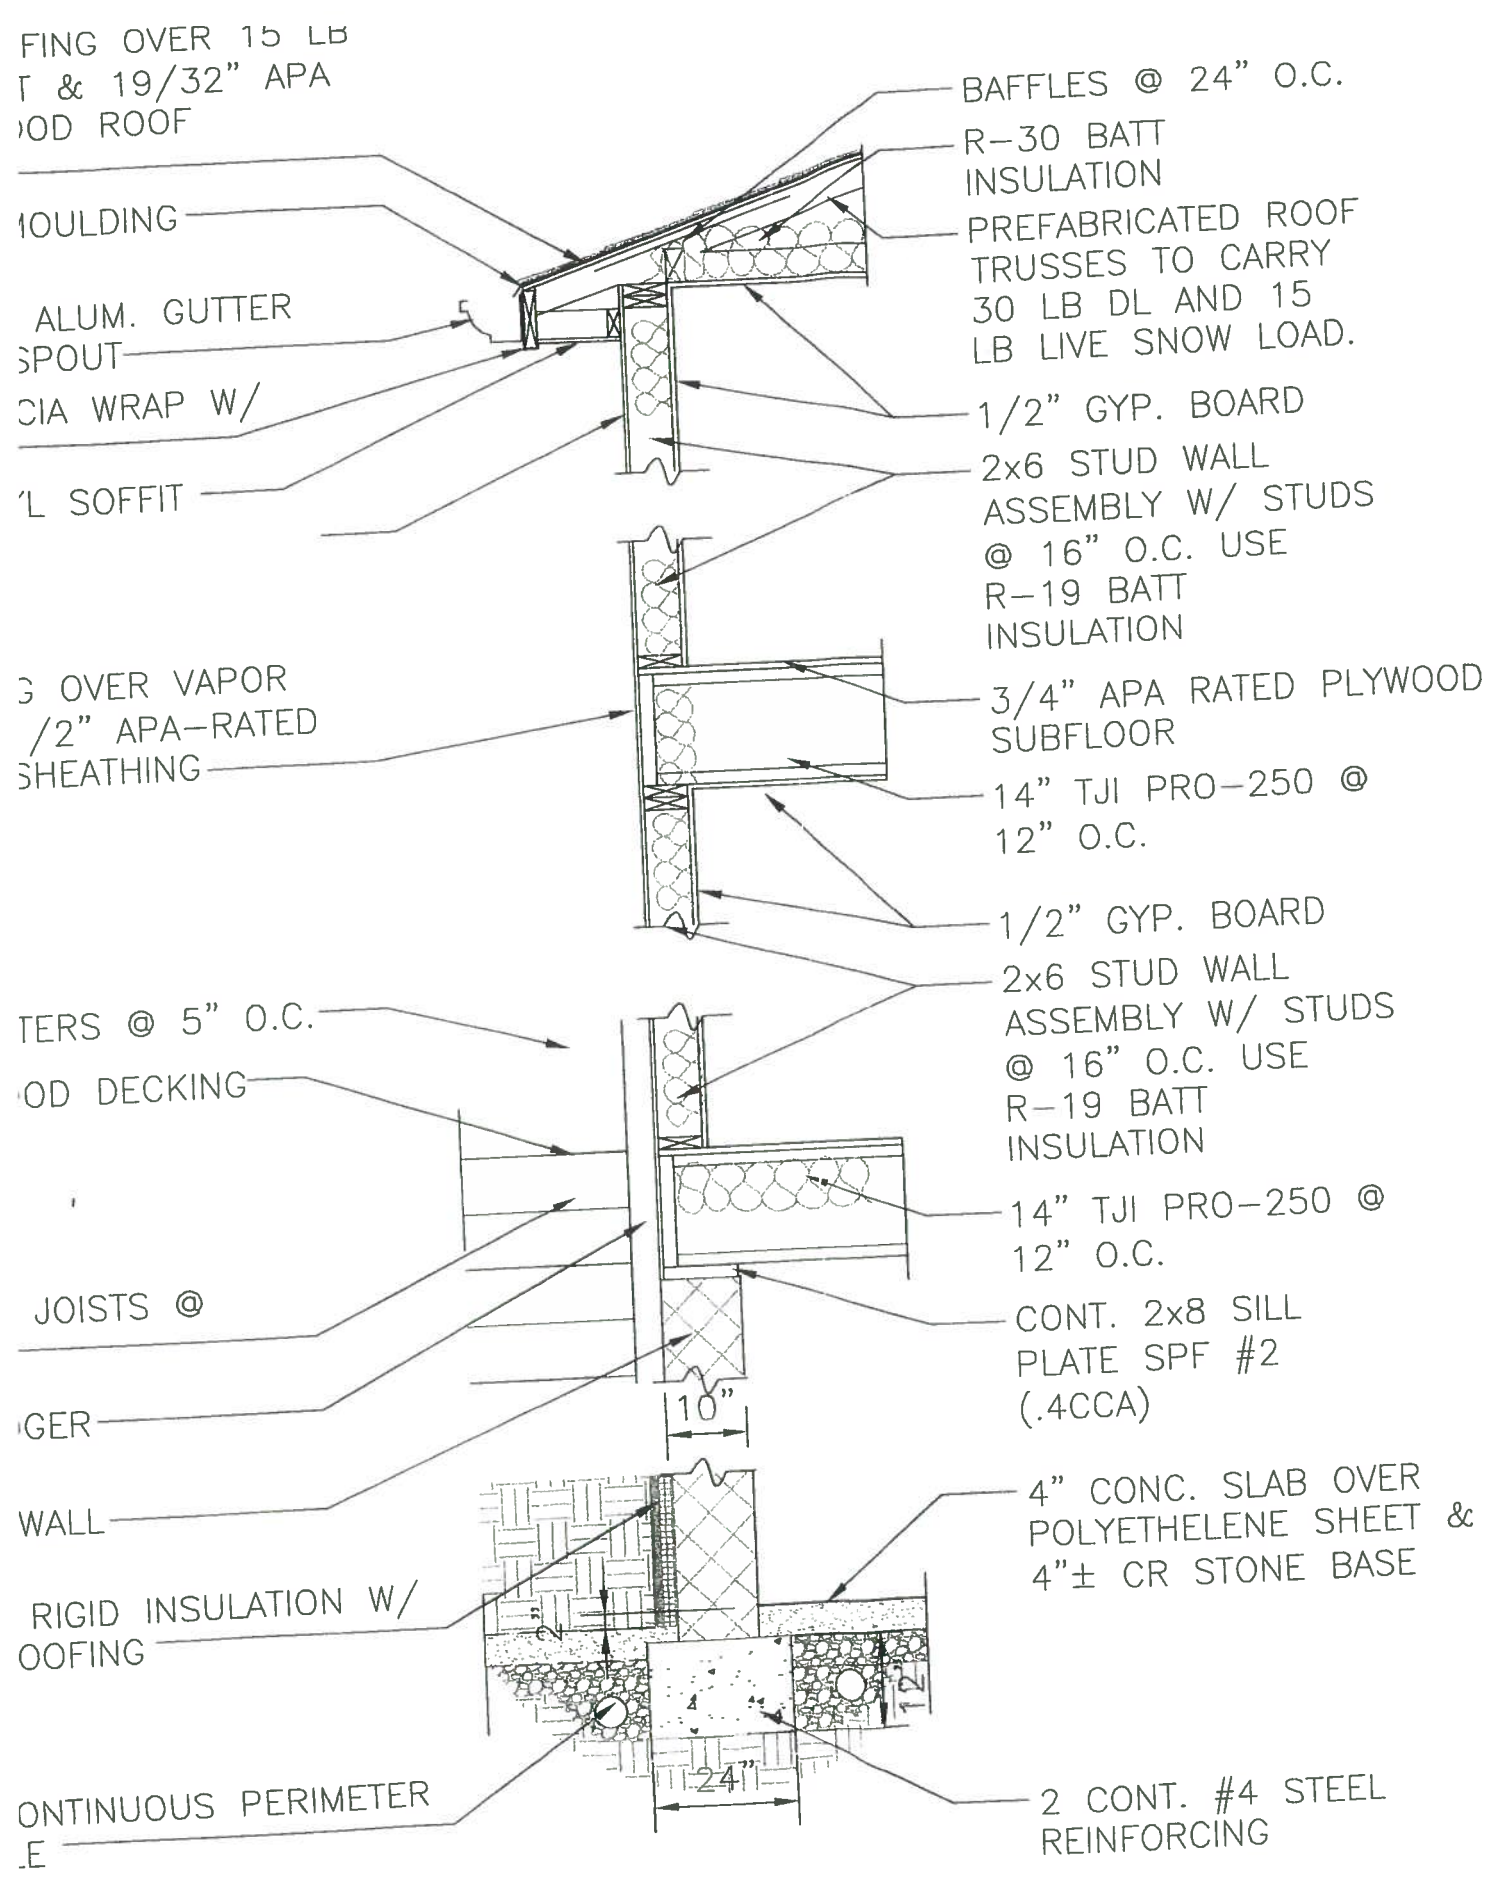 FING OVER 15 LB
T & 19/32" APA
OOD ROOF
MOULDING
ALUM. GUTTER
SPOUT
CIA WRAP W/
'L SOFFIT
G OVER VAPOR
/2" APA-RATED
SHEATHING
TERS @ 5" O.C.
OD DECKING
JOISTS @
GER
WALL
RIGID INSULATION W/
OOFING
ONTINUOUS PERIMETER
LE
BAFFLES @ 24" O.C.
R-30 BATT
INSULATION
PREFABRICATED ROOF
TRUSSES TO CARRY
30 LB DL AND 15
LB LIVE SNOW LOAD.
1/2" GYP. BOARD
2x6 STUD WALL
ASSEMBLY W/ STUDS
@ 16" O.C. USE
R-19 BATT
INSULATION
3/4" APA RATED PLYWOOD
SUBFLOOR
14" TJI PRO-250 @
12" O.C.
1/2" GYP. BOARD
2x6 STUD WALL
ASSEMBLY W/ STUDS
@ 16" O.C. USE
R-19 BATT
INSULATION
14" TJI PRO-250 @
12" O.C.
CONT. 2x8 SILL
PLATE SPF #2
(.4CCA)
10"
4" CONC. SLAB OVER
POLYETHELENE SHEET &
4"± CR STONE BASE
2"
12"
24"
2 CONT. #4 STEEL
REINFORCING